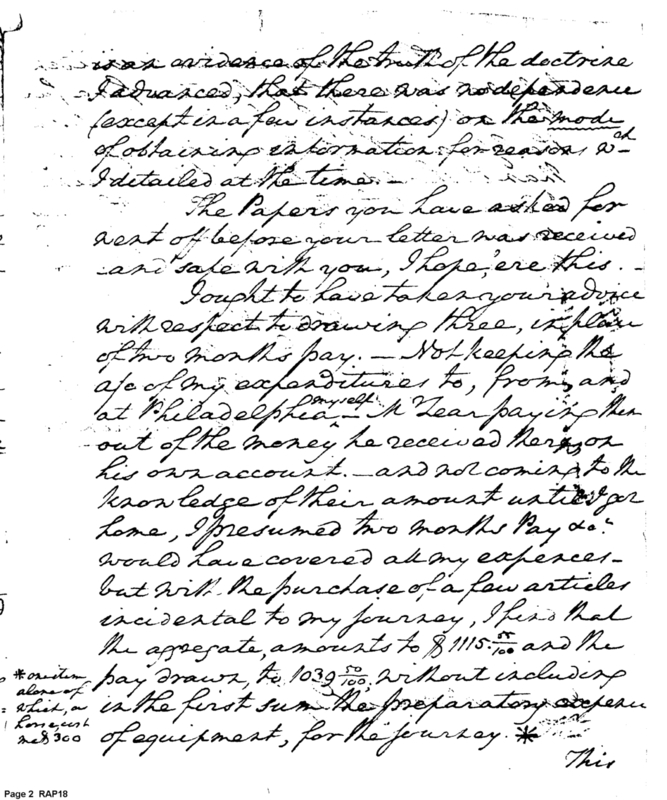 is an evidence of the truth of the doctrine
I advanced, that there was no dependence
(except in a few instances) on the mode
of obtaining information for reasons wch
I detailed at the time.—
The Papers you have asked for
went off before your letter was received
and safe with you, I hope, ere this.—
I ought to have taken your advice
with respect to drawing three, in place
of two months pay.—Not keeping the
a/c of my expenditures to, from, and
at Philadelphia myself—Mr Lear paying them
out of the money he received there on
his own account.—and not coming to the
knowledge of their amount until I got
home, I presumed two months Pay &ca
would have covered all my expences—
but with the purchase of a few articles
incidental to my journey, I find that
the aggregate, amounts to $1115.55/100 and the
pay drawn, to 1039 50/100, without including
in the first sum the preparatory expence
of equipment, for the journey.*
*one item
alone of
which, a
horse, cost
me $300
This
Page 2 RAP18